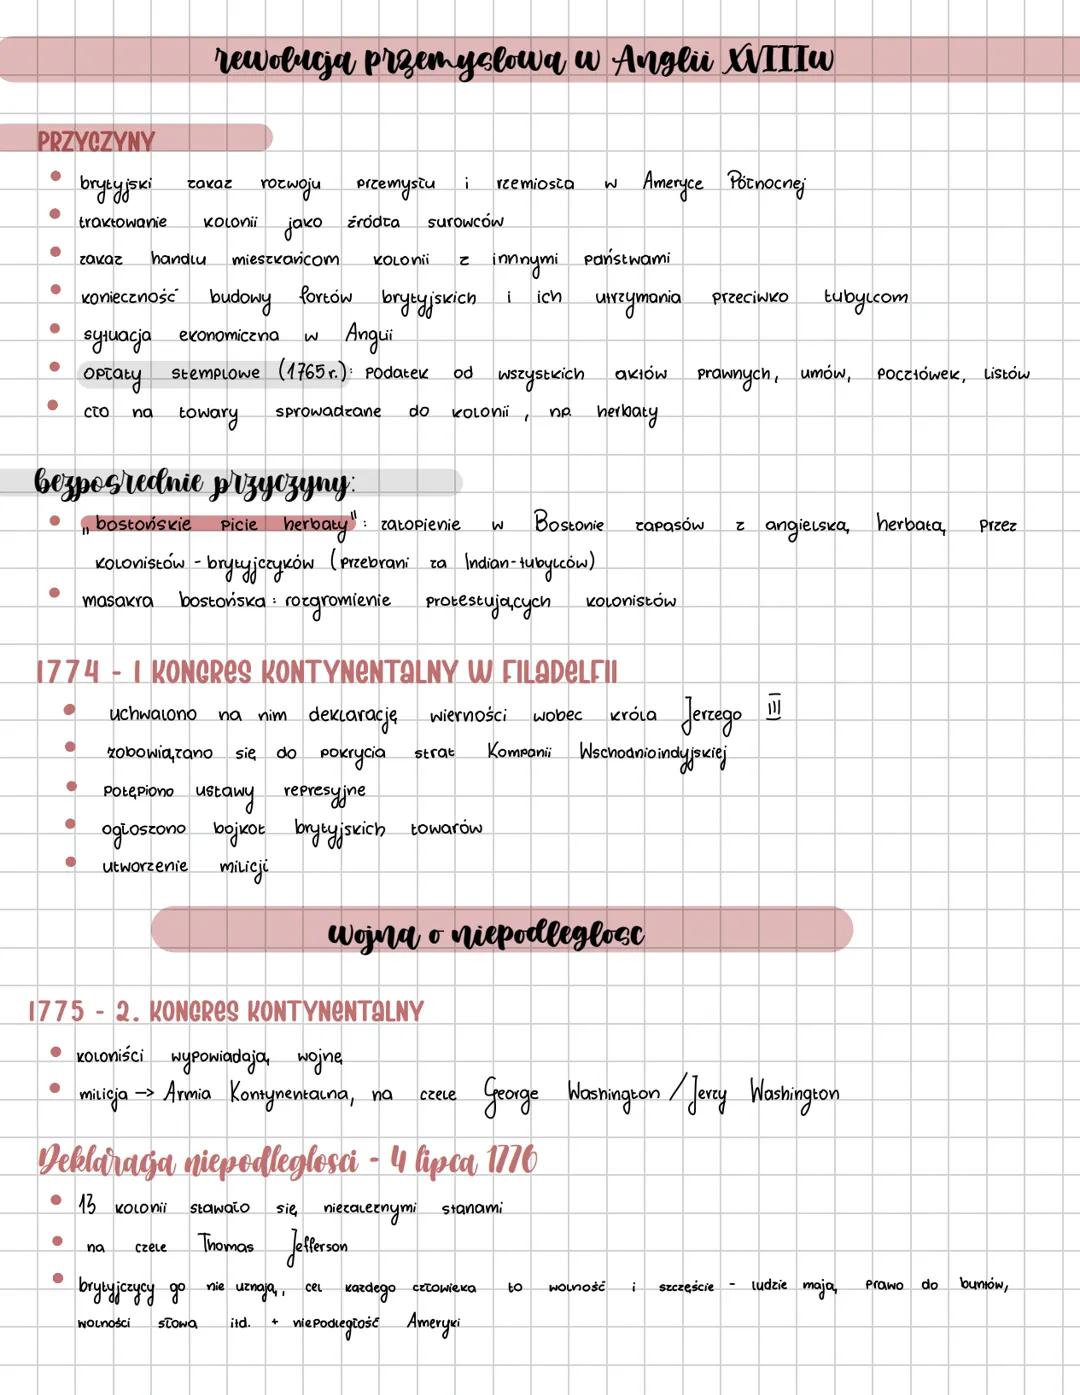 rewolucja przemysłowa w Anglii XVIIIw
PRZYCZYNY
• brytyjski zakaz rozwoju przemysłu i rzemiosła w Ameryce Północnej
• traktowanie kolonii jako źródła surowców
• zakaz handlu mieszkańcom kolonii z innnymi państwami
• konieczność budowy fortów brytyjskich i ich utrzymania przeciwko tubylcom
• sytuacja ekonomiczna w Anglii
• opłaty stemplowe (1765 r.): podatek od wszystkich aktów prawnych, umów, pocztówek, listów
• cło na towary sprowadzane do kolonii, np. herbaty
bezpośrednie przyczyny:
• „bostońskie picie herbaty": zatopienie w Bostonie zapasów z angielską herbatą przez
kolonistów - brytyjczyków (przebrani za Indian-tubylców)
• masakra bostońska: rozgromienie protestujących kolonistów
1774 - I KONGRES KONTYNENTALNY W FILADELFII
• uchwalono na nim deklarację wierności wobec króla Jerzego III
• zobowiązano się do pokrycia strat Kompanii Wschodnioindyjskiej
• potępiono ustawy represyjne
• ogłoszono bojkot brytyjskich towarów
• utworzenie milicji
wojna o niepodległosc
1775 - 2. KONGRES KONTYNENTALNY
• koloniści wypowiadają wojnę
• milicja -> Armia Kontynentalna, na czele George Washington / Jerzy Washington
Deklaracja niepodległosci - 4 lipca 1776
• 13 kolonii stawało się niezależnymi stanami
• na czele Thomas Jefferson
• brytyjczycy go nie uznają, cel każdego człowieka to wolność i szczęście - ludzie mają prawo do buntów,
wolności słowa itd. + niepodległość Ameryki